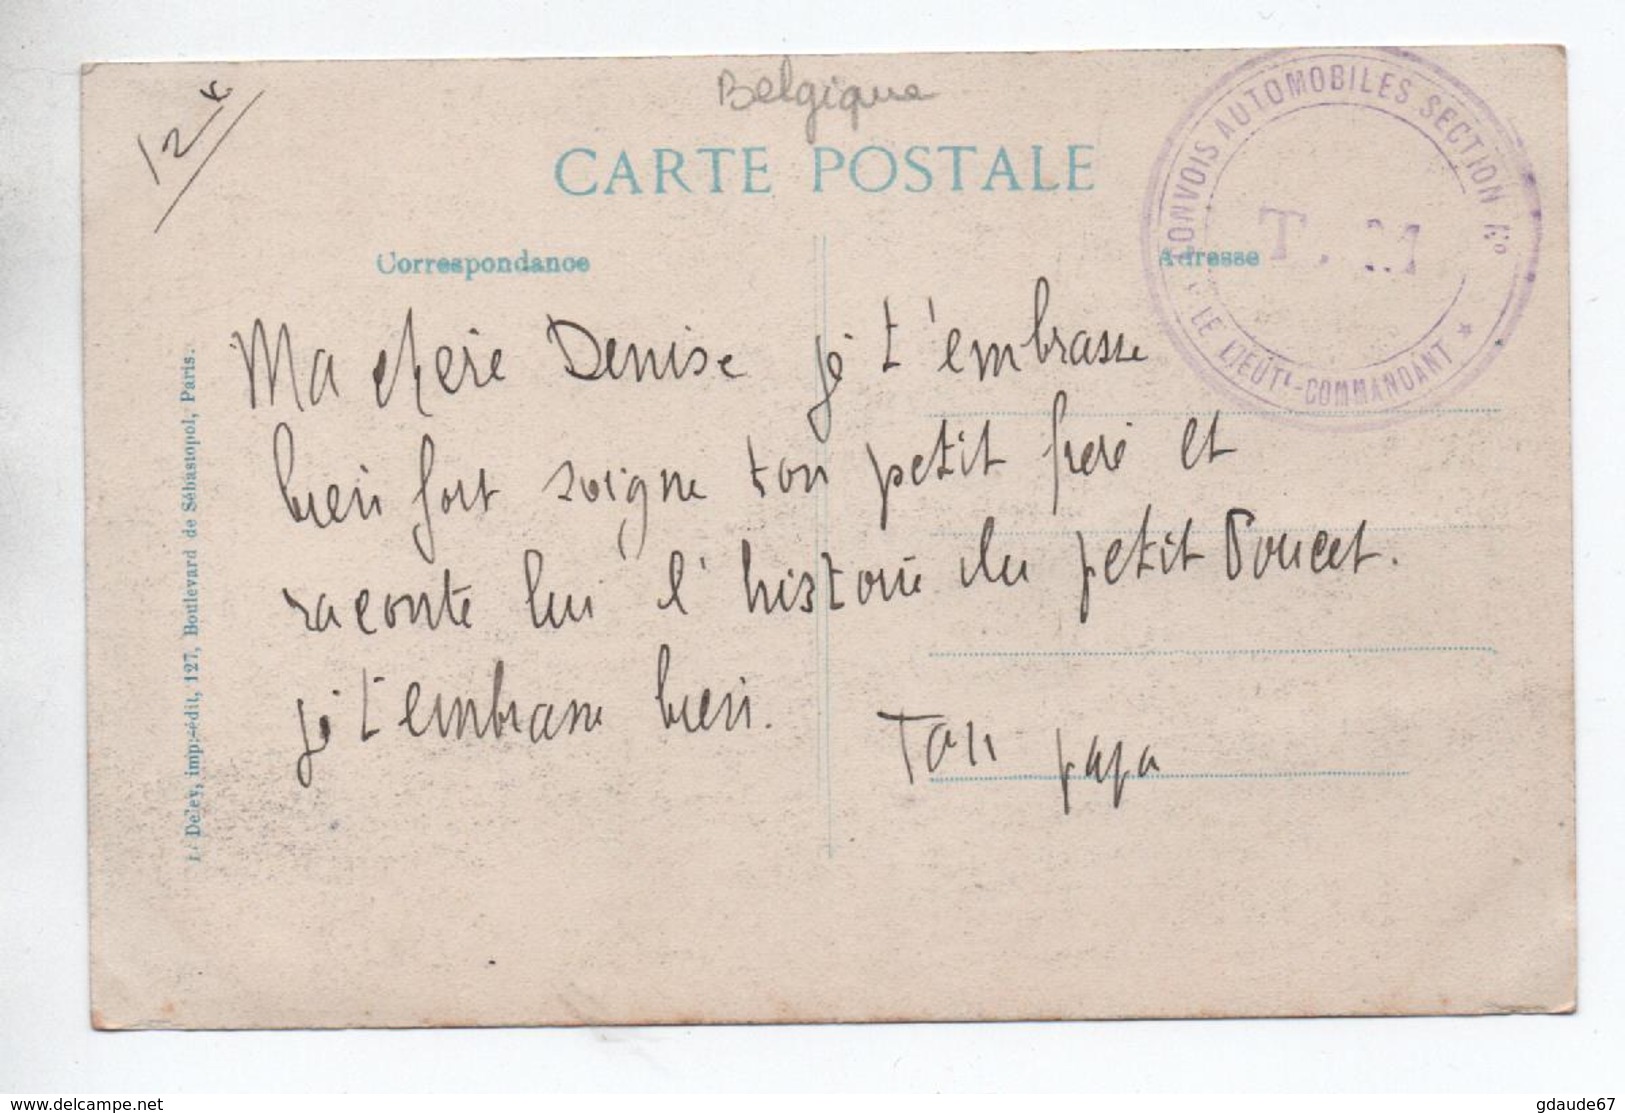 Belgique
12 €
CARTE POSTALE
CONVOIS AUTOMOBILES SECTION No
T. M
* LE LIEUT^t-COMMANDANT *
Correspondance
Adresse
Ma chère Denise je t'embrasse
bien fort soigne ton petit frere et
raconte lui l'histoire du petit Poucet.
je t'embrasse bien.
Ton papa
L. Deley, imp.-édit, 127, Boulevard de Sébastopol, Paris.
www.delcampe.net
gdaude67